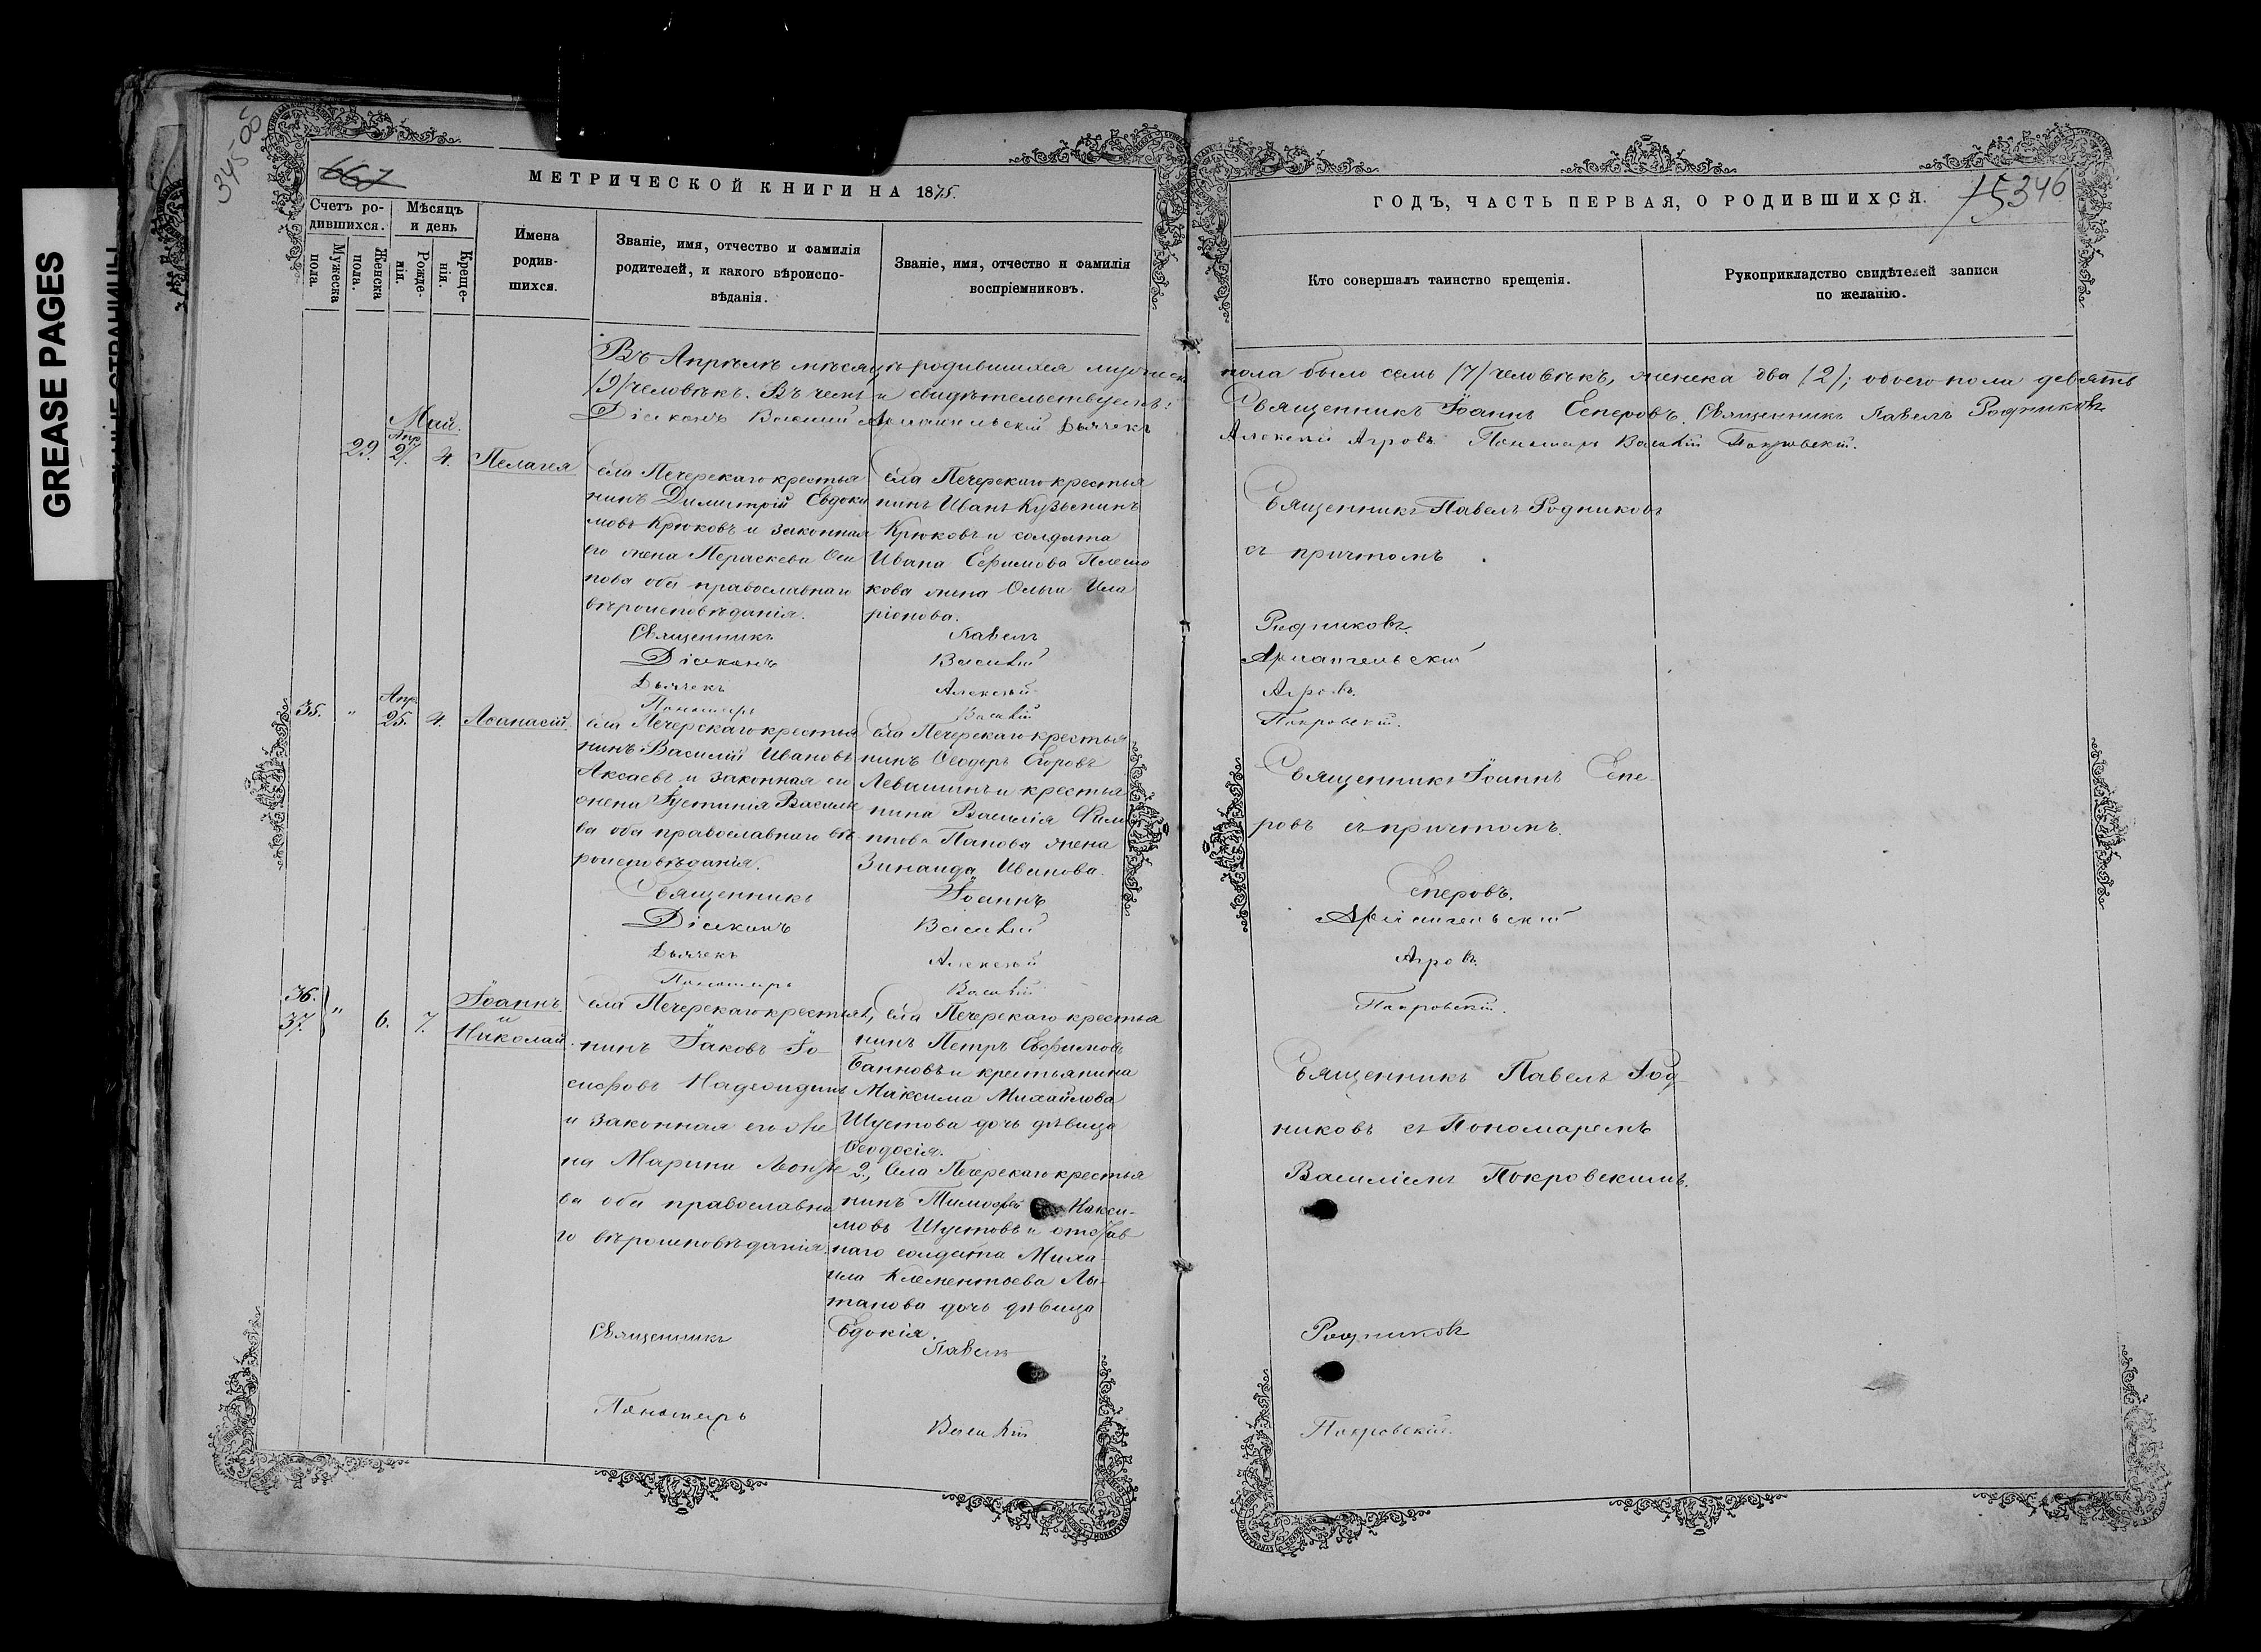 GREASE PAGES
345-об
667
МЕТРИЧЕСКОЙ КНИГИ НА 1875.
Счетъ ро-
дившихся.
Мужеска
пола.
Женска
пола.
Мѣсяцъ
и день
Рожде-
нія.
Креще-
нія.
Имена
родив-
шихся.
Званіе, имя, отчество и фамилія
родителей, и какого вѣроиспо-
вѣданія.
Званіе, имя, отчество и фамилія
воспріемниковъ.
Въ Апрѣлѣ мѣсяцѣ родившихся мужеск
/9/ человѣкъ. Въ чемъ и свидѣтельствуемъ:
Діаконъ Василій Архангельскій Дьячекъ
Май.
29. Апр. 27. 4. Пелагея
Села Печерскаго крестья
нинъ Димитрій Евдоки
мовъ Крюковъ и законная
его жена Параскева Оси
пова оба православнаго
вѣроисповѣданія.
Села Печерскаго крестья
нинъ Иванъ Кузьминъ
Крюковъ и солдата
Ивана Ефимова
кова жена Ольга Ила
ріонова.
Священникъ Павелъ
Діаконъ Василій
Дьячекъ Алексѣй
Пономарь Василій
35. " Апр. 25. 4. Аѳанасій.
Села Печерскаго крестья
нинъ Василій Ивановъ
Аксаевъ и законная его
жена Іустинія Василье
ва оба православнаго вѣ-
роисповѣданія.
Села Печерскаго крестья
нинъ Ѳеодоръ Егоровъ
Левашинъ и крестья
нина Василія Фили
ппова Панова жена
Зинаида Иванова.
Священникъ Іоаннъ
Діаконъ Василій
Дьячекъ Алексѣй
Пономарь Василій
36.
37. " 6. 7. Іоаннъ
и
Николай.
Села Печерскаго крестья
нинъ Іаковъ Іо-
сифовъ
и законная его же
на Марина
ва оба православна
го вѣроисповѣданія.
1, Села Печерскаго крестья
нинъ Петръ Евфимовъ
Банновъ и крестьянина
Максима Михайлова
Шустова дочь дѣвица
Ѳеодосія.
2, Села Печерскаго крестья
нинъ Тимофей Макси-
мовъ Шустовъ и отстав
наго солдата Миха-
ила Клементьева Лы-
танова дочь дѣвица
Евдокія.
Священникъ Павелъ
Пономарь Василій
ГОДЪ, ЧАСТЬ ПЕРВАЯ, О РОДИВШИХСЯ.
346
Кто совершалъ таинство крещенія.
Рукоприкладство свидѣтелей записи
по желанію.
пола было семь /7/ человѣкъ, женска два /2/; обоего пола девять
Священникъ Іоаннъ Есперовъ. Священникъ Павелъ Родниковъ
Алексѣй Агровъ. Пономарь Василій Покровскій.
Священникъ Павелъ Родниковъ
съ причтомъ
Родниковъ.
Архангельскій
Агровъ.
Покровскій.
Священникъ Іоаннъ Еспе-
ровъ съ причтомъ.
Есперовъ.
Архангельскій
Агровъ.
Покровскій.
Священникъ Павелъ Род
никовъ съ Пономаремъ
Василіемъ Покровскимъ.
Родниковъ
Покровскій.